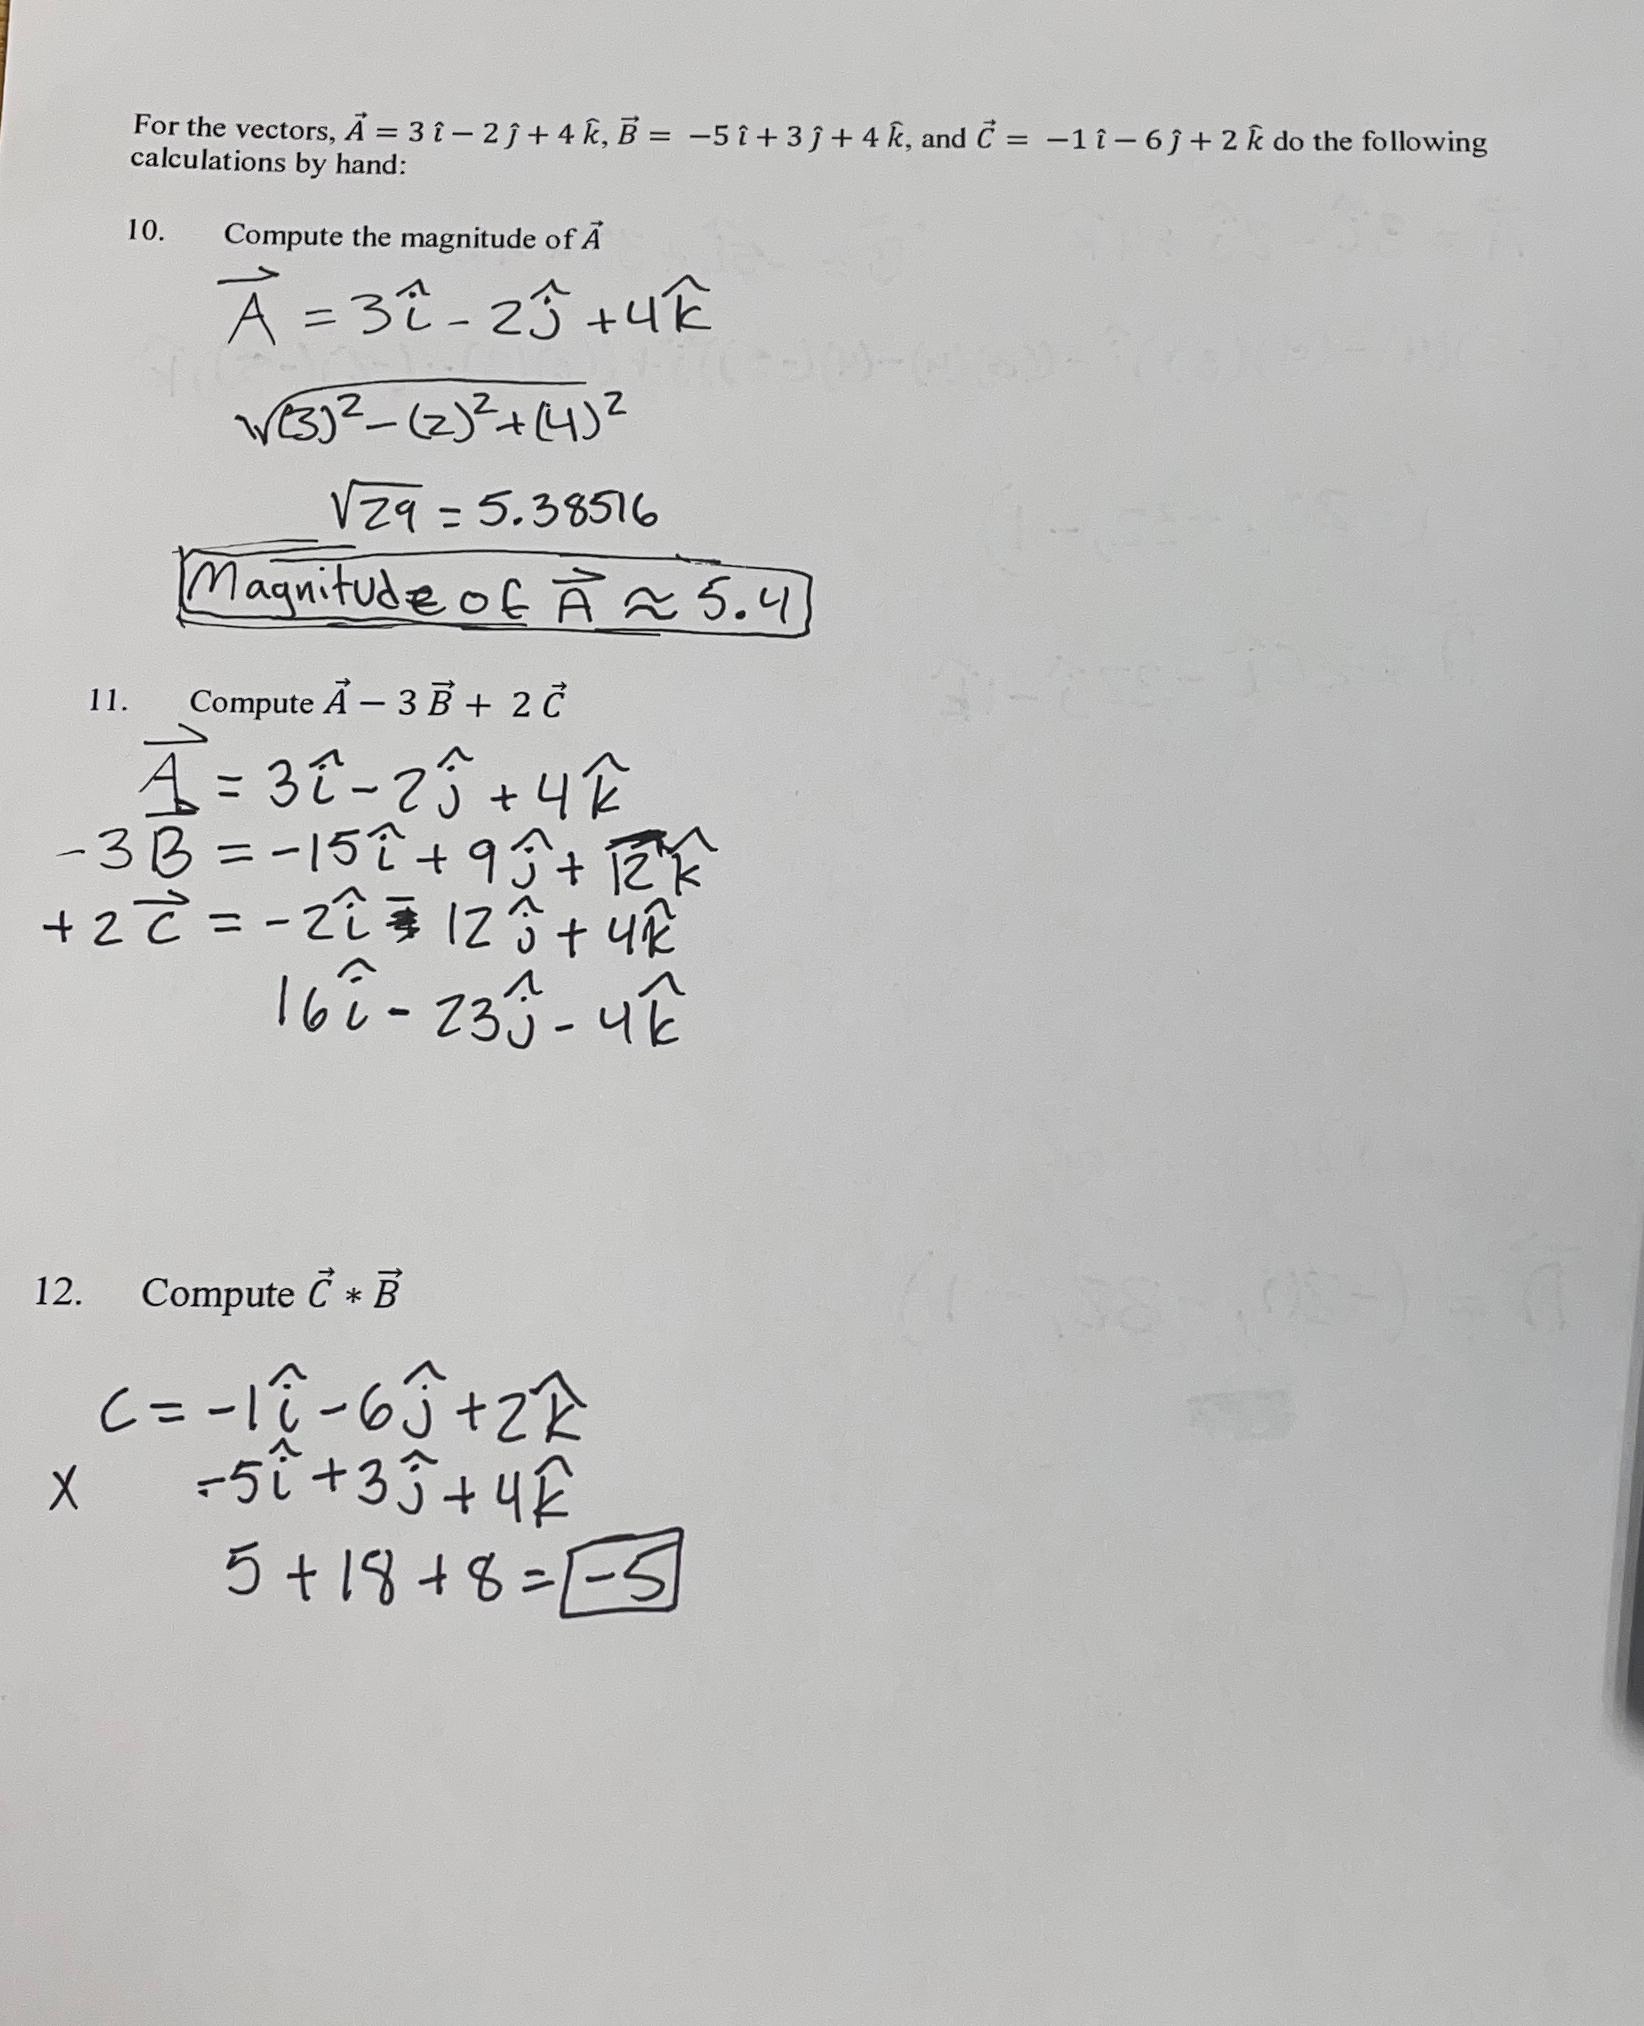 For the vectors, A⃗ = 3 î − 2 ĵ + 4 k̂, B⃗ = −5 î + 3 ĵ + 4 k̂, and C⃗ = −1 î − 6 ĵ + 2 k̂ do the following
calculations by hand:
10. Compute the magnitude of A⃗
A⃗ = 3î - 2ĵ + 4k̂
√(3)² - (2)² + (4)²
√29 = 5.38516
Magnitude of A⃗ ≈ 5.4
11. Compute A⃗ − 3 B⃗ + 2 C⃗
A⃗ = 3î - 2ĵ + 4k̂
-3B⃗ = -15î + 9ĵ + 12k̂
+2C⃗ = -2î - 12ĵ + 4k̂
16î - 23ĵ - 4k̂
12. Compute C⃗ ∗ B⃗
C = -1î - 6ĵ + 2k̂
x -5î + 3ĵ + 4k̂
5 + 18 + 8 = -5